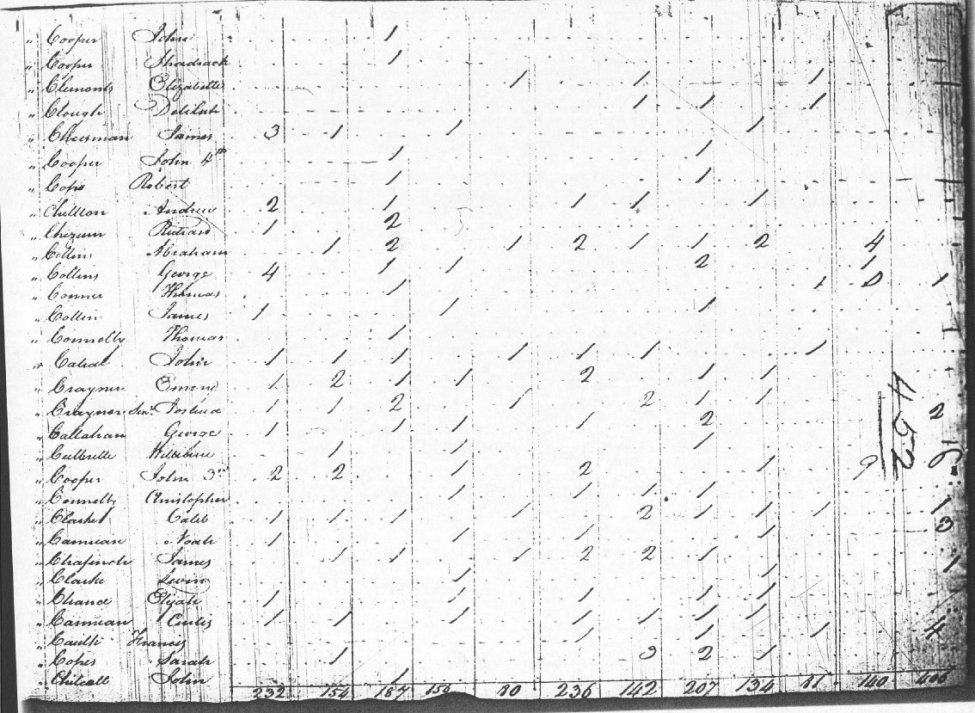 " Cooper John 1
" Cooper Shadrack 1 1
" Clemonts Elizabeth 1 1 1
" Clough Delilah 1 1 1
" Cheesman James 3 1 1 1
" Cooper John 4th 1 1
" Cope Robert 1 1
" Chilton Andrew 2 1 1 1 1
" Chezum Richard 1 2
" Collins Abraham 1 2 1 2 1 1 2 4
" Collins George 4 1 1 2 1
" Conner Thomas 1 1 1
" Collin James 1 1 1
" Connolly Thomas 1
" John 1 1 1 1 1 1 1
" Craynor 1 2 1 1 2 1 1
" Craynor Senr. Joshua 1 1 2 1 2 1 1 2
" Callahan George 1 1 1 1 2
" William 1 1 1
" Cooper John 3rd 2 2 1 2 1 9
" Connolly Christopher 1 1 1 1
" Caleb 1 1 1 1 2 1 1 1 1
" Noah 1 1 1 1 3
" James 1 1 1 2 2 1 1
" Clarke Levin 1 1
" Chance Elijah 1 1 1 1 1
" Curtis 1 1 1 1 1 1 1
" Caulk Francis 1 1 1 4
" Copes Sarah 1 3 2 1
" Chilcutt John 1
232 154 187 80 236 142 207 134 81 140
452